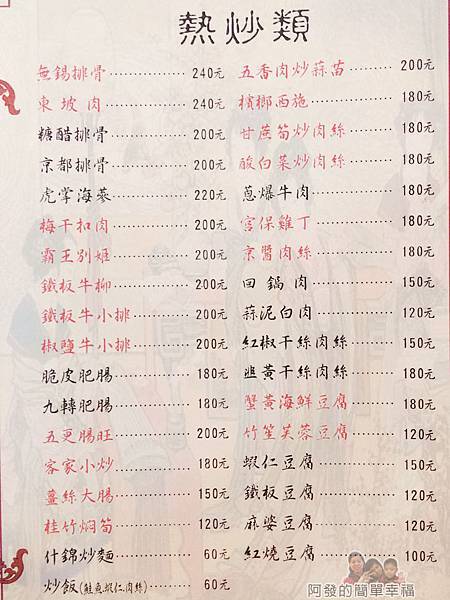 熱炒類
無錫排骨 240元
東坡肉 240元
糖醋排骨 200元
京都排骨 200元
虎掌海蔘 220元
梅干扣肉 200元
霸王別姬 200元
鐵板牛柳 200元
鐵板牛小排 200元
椒鹽牛小排 200元
脆皮肥腸 180元
九轉肥腸 180元
五更腸旺 200元
客家小炒 180元
薑絲大腸 150元
桂竹焖筍 120元
什錦炒麵 60元
炒飯(鮭魚蝦仁肉絲) 60元
五香肉炒蒜苗 200元
檳榔西施 180元
甘蔗筍炒肉絲 180元
酸白菜炒肉絲 180元
蔥爆牛肉 180元
宮保雞丁 180元
京醬肉絲 180元
回鍋肉 150元
蒜泥白肉 120元
紅椒干絲肉絲 150元
韭黃干絲肉絲 180元
蟹黃海鮮豆腐 180元
竹笙芙蓉豆腐 120元
蝦仁豆腐 150元
鐵板豆腐 120元
麻婆豆腐 120元
紅燒豆腐 100元
阿發的簡單幸福